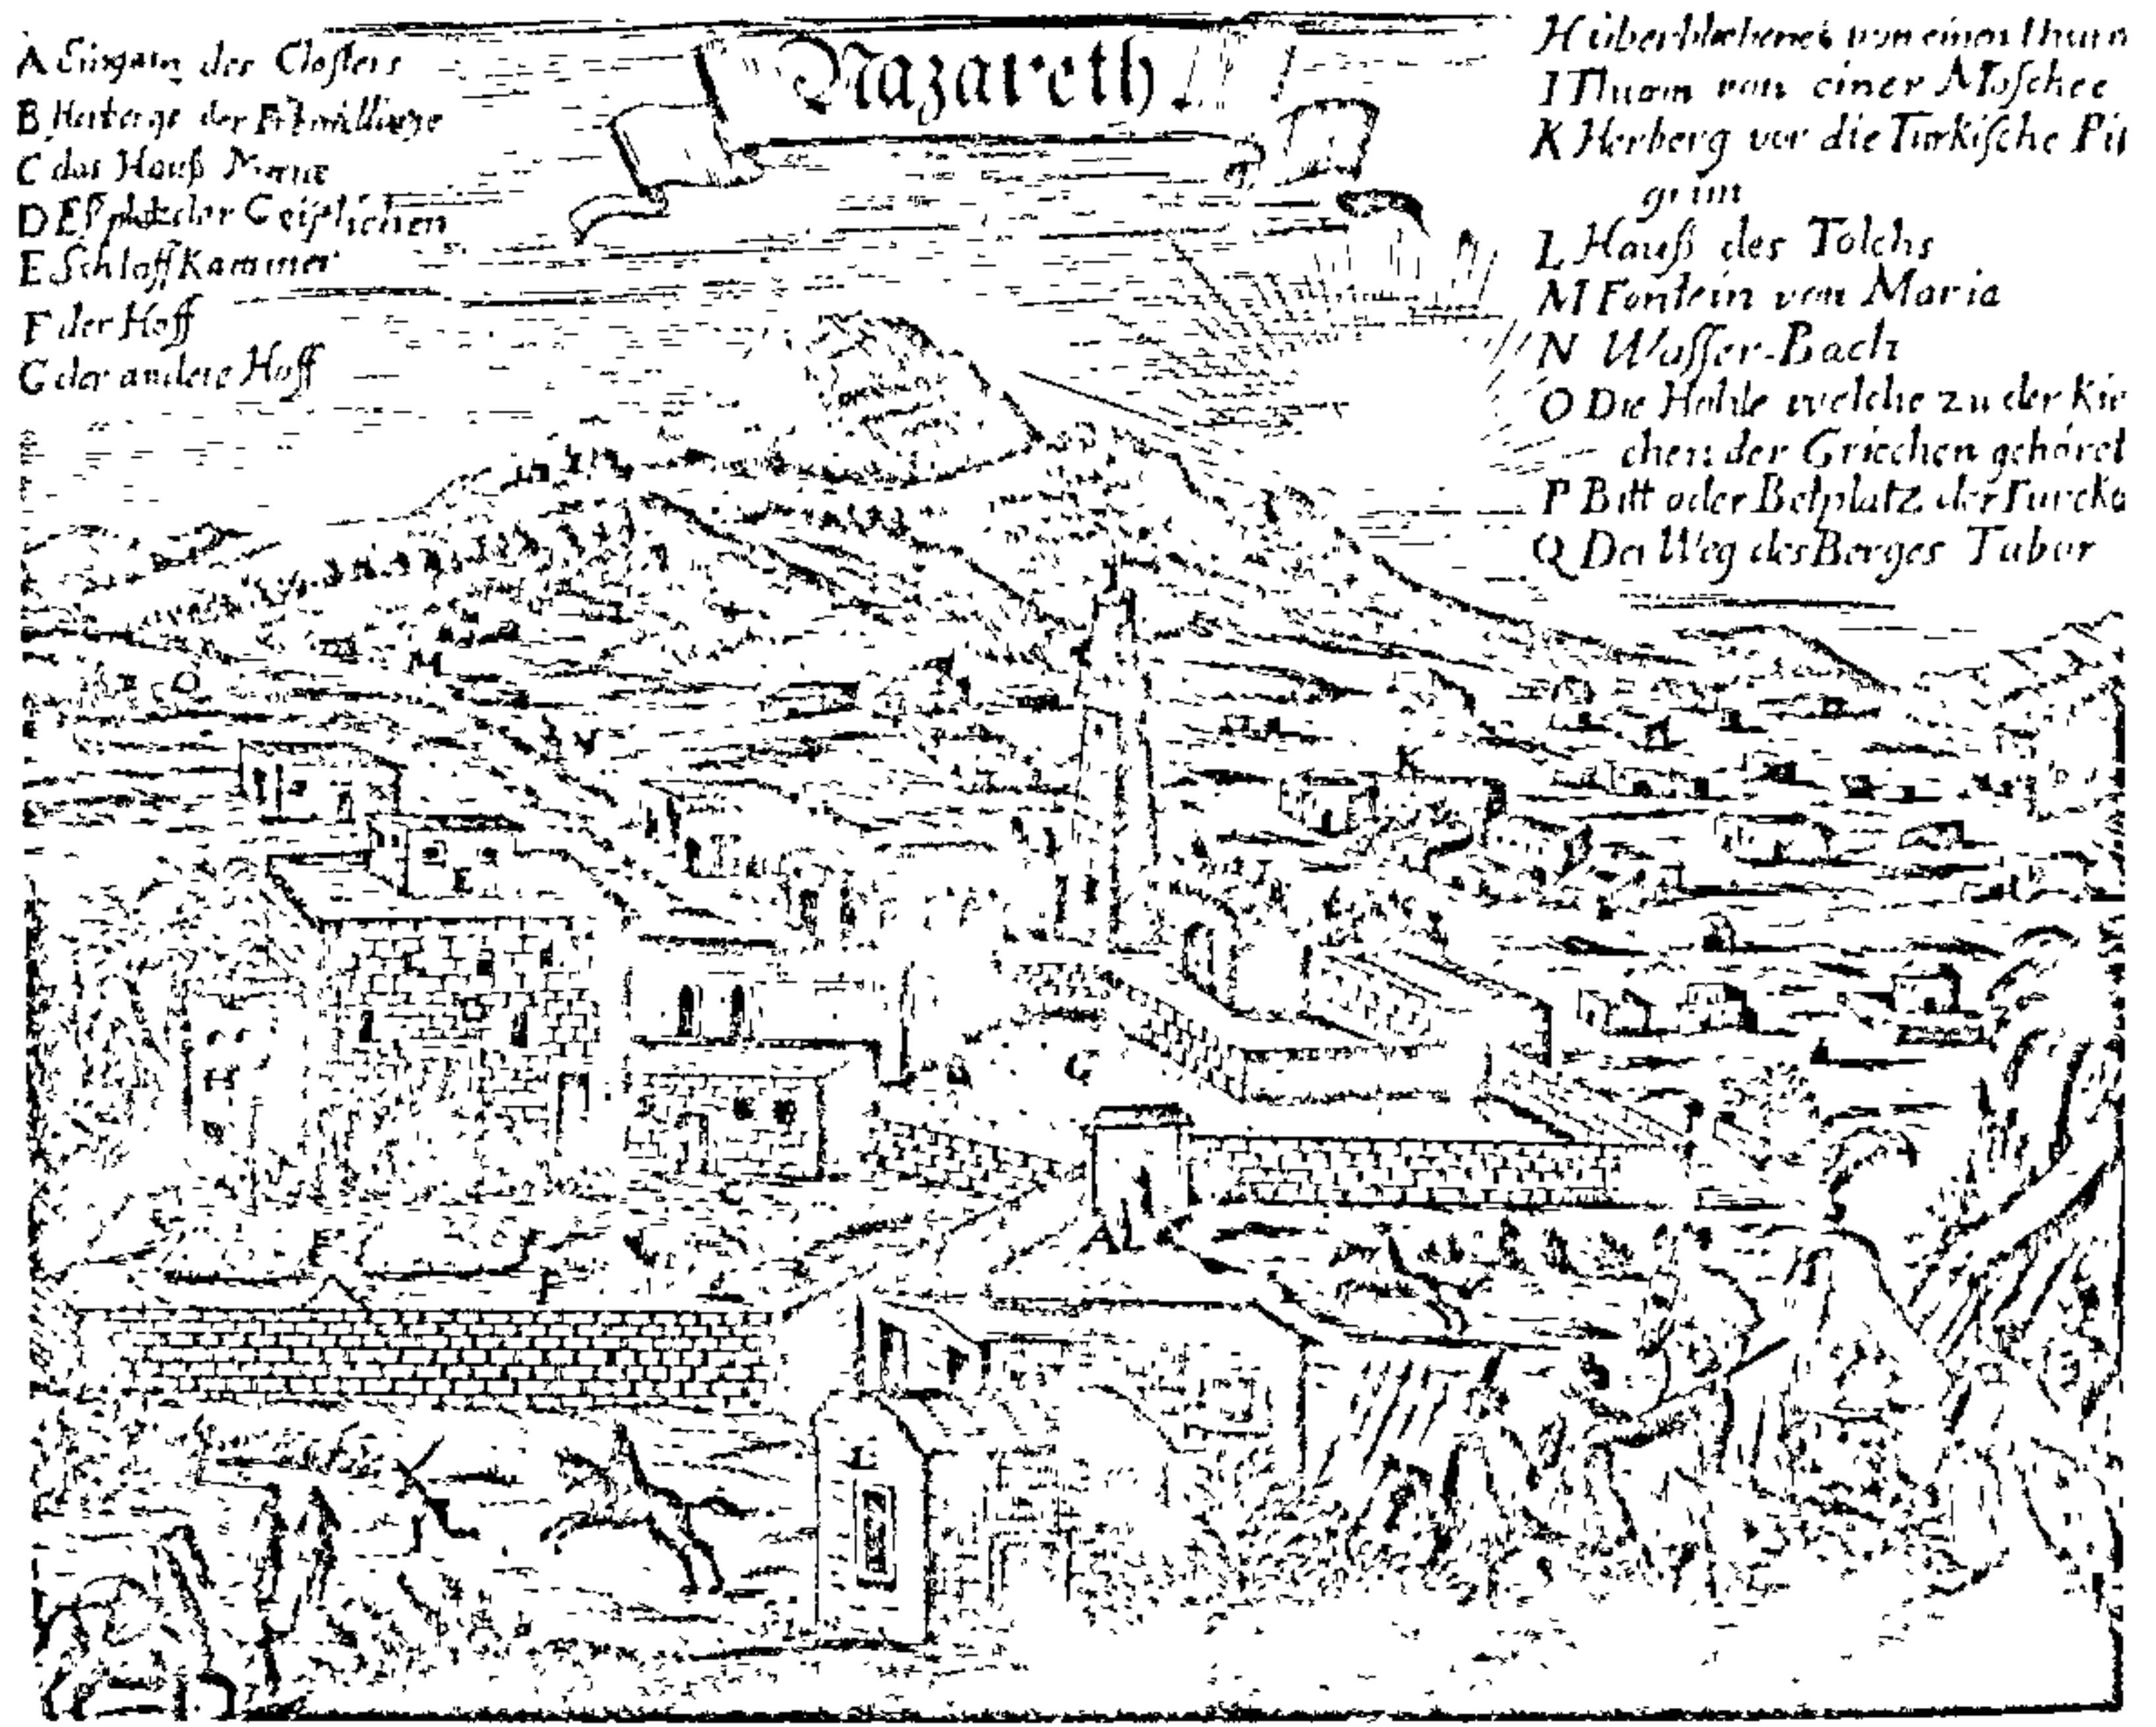 Nazareth
A Eingang des Closters
B Herberge der
C das Hauß Mariae
D Eßplatz der Geistlichen
E Schlaff Kammer
F der Hoff
G der andere Hoff
H überbliebenes von einen Thurn
I Thurm von einer Moschee
K Herberg vor die Turkische Pil
grim
L Hauß des Tolchs
M Fontein von Maria
N Wasser-Bach
O Die Hohle welche zu der Kir
chen der Griechen gehöret
P Bitt oder Betplatz der Turcka
Q Der Weg des Berges Tabor
O
M
N
K
E
I
H
D
G
C
A
F
L